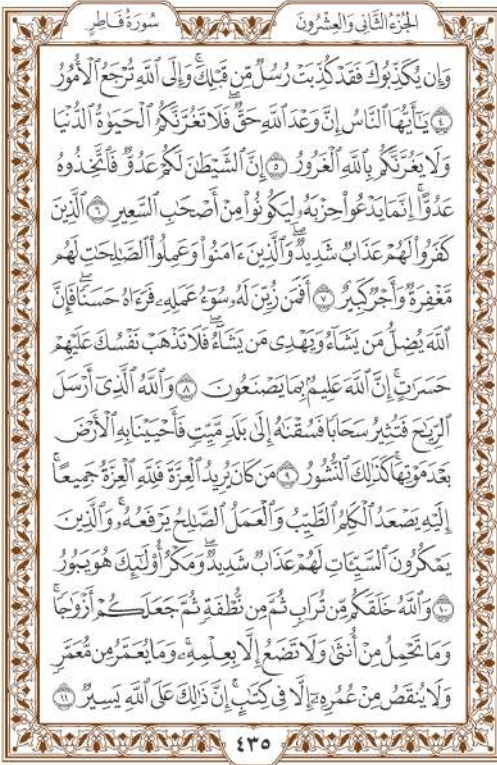 الجُزْءُ الثَّانِي وَالعِشْرُونَ سُورَةُ فَاطِرٍ
وَإِن يُكَذِّبُوكَ فَقَدْ كُذِّبَتْ رُسُلٌ مِّن قَبْلِكَ ۚ وَإِلَى ٱللَّهِ تُرْجَعُ ٱلْأُمُورُ
٤ يَٰٓأَيُّهَا ٱلنَّاسُ إِنَّ وَعْدَ ٱللَّهِ حَقٌّ ۖ فَلَا تَغُرَّنَّكُمُ ٱلْحَيَوٰةُ ٱلدُّنْيَا
وَلَا يَغُرَّنَّكُم بِٱللَّهِ ٱلْغَرُورُ ٥ إِنَّ ٱلشَّيْطَٰنَ لَكُمْ عَدُوٌّ فَٱتَّخِذُوهُ
عَدُوًّا ۚ إِنَّمَا يَدْعُوا۟ حِزْبَهُۥ لِيَكُونُوا۟ مِنْ أَصْحَٰبِ ٱلسَّعِيرِ ٦ ٱلَّذِينَ
كَفَرُوا۟ لَهُمْ عَذَابٌ شَدِيدٌ ۖ وَٱلَّذِينَ ءَامَنُوا۟ وَعَمِلُوا۟ ٱلصَّٰلِحَٰتِ لَهُم
مَّغْفِرَةٌ وَأَجْرٌ كَبِيرٌ ٧ أَفَمَن زُيِّنَ لَهُۥ سُوٓءُ عَمَلِهِۦ فَرَءَاهُ حَسَنًا ۖ فَإِنَّ
ٱللَّهَ يُضِلُّ مَن يَشَآءُ وَيَهْدِى مَن يَشَآءُ ۖ فَلَا تَذْهَبْ نَفْسُكَ عَلَيْهِمْ
حَسَرَٰتٍ ۚ إِنَّ ٱللَّهَ عَلِيمٌۢ بِمَا يَصْنَعُونَ ٨ وَٱللَّهُ ٱلَّذِىٓ أَرْسَلَ
ٱلرِّيَٰحَ فَتُثِيرُ سَحَابًا فَسُقْنَٰهُ إِلَىٰ بَلَدٍ مَّيِّتٍ فَأَحْيَيْنَا بِهِ ٱلْأَرْضَ
بَعْدَ مَوْتِهَا ۚ كَذَٰلِكَ ٱلنُّشُورُ ٩ مَن كَانَ يُرِيدُ ٱلْعِزَّةَ فَلِلَّهِ ٱلْعِزَّةُ جَمِيعًا ۚ
إِلَيْهِ يَصْعَدُ ٱلْكَلِمُ ٱلطَّيِّبُ وَٱلْعَمَلُ ٱلصَّٰلِحُ يَرْفَعُهُۥ ۚ وَٱلَّذِينَ
يَمْكُرُونَ ٱلسَّيِّـَٔاتِ لَهُمْ عَذَابٌ شَدِيدٌ ۖ وَمَكْرُ أُو۟لَٰٓئِكَ هُوَ يَبُورُ
١٠ وَٱللَّهُ خَلَقَكُم مِّن تُرَابٍ ثُمَّ مِن نُّطْفَةٍ ثُمَّ جَعَلَكُمْ أَزْوَٰجًا ۚ
وَمَا تَحْمِلُ مِنْ أُنثَىٰ وَلَا تَضَعُ إِلَّا بِعِلْمِهِۦ ۚ وَمَا يُعَمَّرُ مِن مُّعَمَّرٍ
وَلَا يُنقَصُ مِنْ عُمُرِهِۦٓ إِلَّا فِى كِتَٰبٍ ۚ إِنَّ ذَٰلِكَ عَلَى ٱللَّهِ يَسِيرٌ ١١
٤٣٥